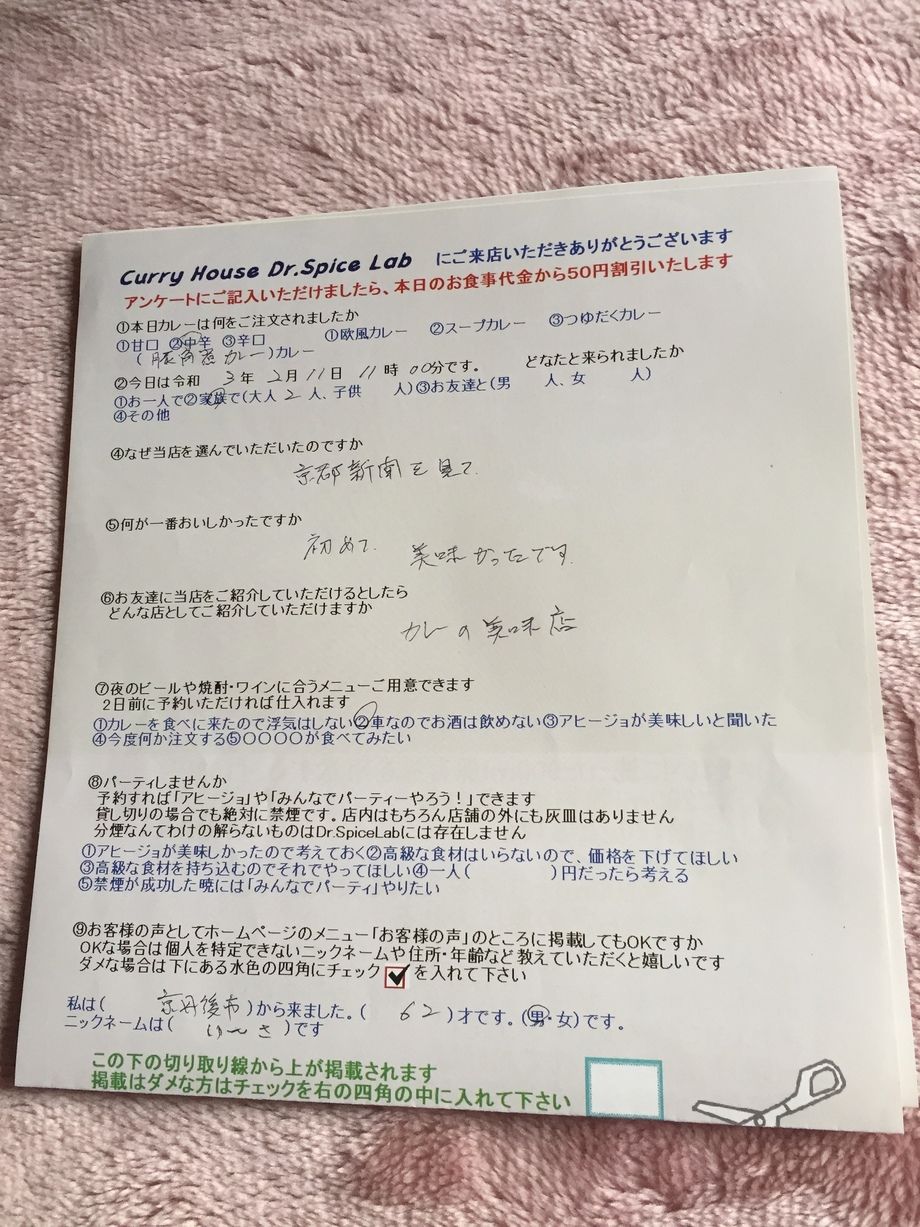 Curry House Dr.Spice Lab にご来店いただきありがとうございます
アンケートにご記入いただけましたら、本日のお食事代金から50円割引いたします
①本日カレーは何をご注文されましたか
①甘口 ②中辛 ③辛口 ①欧風カレー ②スープカレー ③つゆだくカレー
(豚角煮カレー)カレー
②今日は令和 3年 2月11日 11時00分です。 どなたと来られましたか
①お一人で②家族で(大人 2人、子供 人)③お友達と(男 人、女 人)
④その他
④なぜ当店を選んでいただいたのですか
京都新聞を見て
⑤何が一番おいしかったですか
初めて 美味かったです
⑥お友達に当店をご紹介していただけるとしたら
どんな店としてご紹介していただけますか
カレーの美味店
⑦夜のビールや焼酎・ワインに合うメニューご用意できます
2日前に予約いただければ仕入れます
①カレーを食べに来たので浮気はしない②車なのでお酒は飲めない③アヒージョが美味しいと聞いた
④今度何か注文する⑤〇〇〇〇が食べてみたい
⑧パーティしませんか
予約すれば「アヒージョ」や「みんなでパーティーやろう!」できます
貸し切りの場合でも絶対に禁煙です。店内はもちろん店舗の外にも灰皿はありません
分煙なんてわけの解らないものはDr.SpiceLabには存在しません
①アヒージョが美味しかったので考えておく②高級な食材はいらないので、価格を下げてほしい
③高級な食材を持ち込むのでそれでやってほしい④一人( )円だったら考える
⑤禁煙が成功した暁には「みんなでパーティ」やりたい
⑨お客様の声としてホームページのメニュー「お客様の声」のところに掲載してもOKですか
OKな場合は個人を特定できないニックネームや住所・年齢など教えていただくと嬉しいです
ダメな場合は下にある水色の四角にチェック を入れて下さい
私は( 京丹後市 )から来ました。( 62 )才です。(男・女)です。
ニックネームは( )です
この下の切り取り線から上が掲載されます
掲載はダメな方はチェックを右の四角の中に入れて下さい